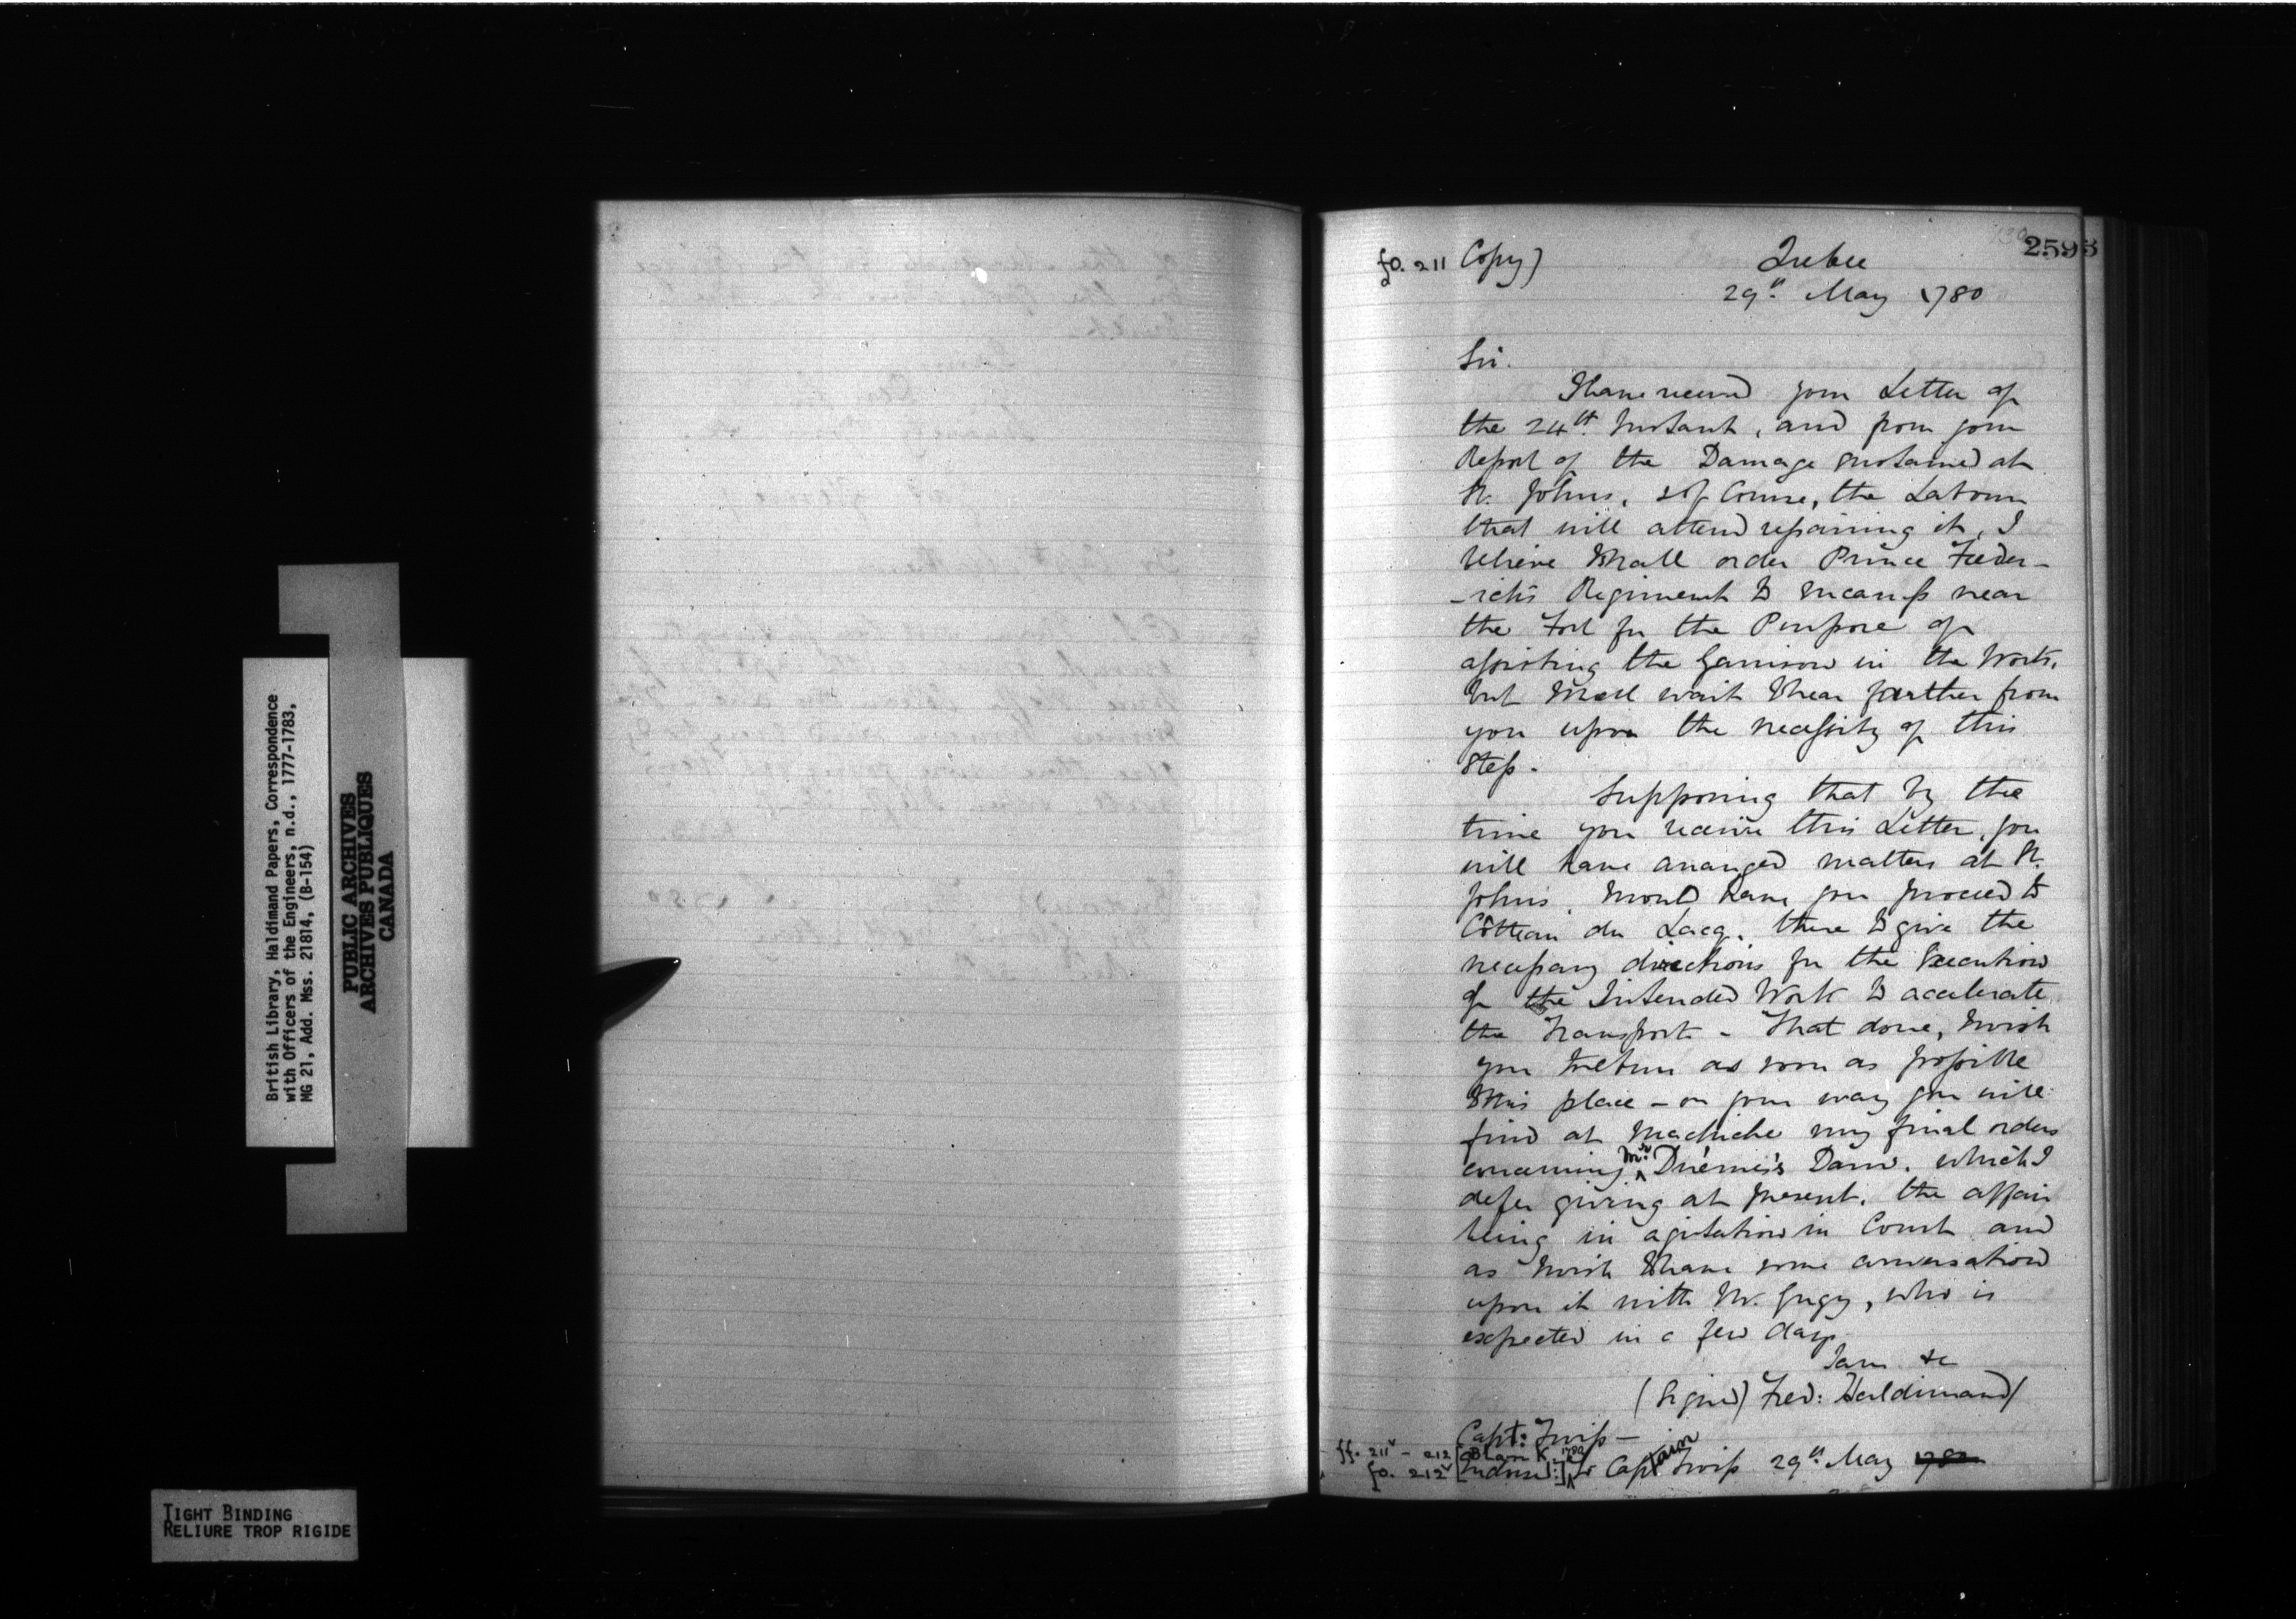 British Library, Haldimand Papers, Correspondence
with Officers of the Engineers, n.d., 1777-1783,
MG 21, Add. Mss. 21814, (B-154)
PUBLIC ARCHIVES
ARCHIVES PUBLIQUES
CANADA
TIGHT BINDING
RELIURE TROP RIGIDE
2595
fo. 211 Copy) Quebec
29th. May 1780
Sir.
I have received your Letter of
the 24th. Instant, and from your
Report of the Damage sustained at
St. Johns, & of Course, the Labour
that will attend repairing it, I
believe Shall order Prince Freder-
-ick's Regiment to encamp near
the Fort for the Purpose of
assisting the Garrison in the Work,
but shall wait to hear further from
you upon the necessity of this
Step.
Supposing that by the
time you receive this Letter, you
will have arranged matters at St.
Johns, I would have you proceed to
Côtteau du Lacq, there to give the
necessary directions for the Execution
of the Intended Work to accelerate
the Transport - That done, I wish
you to return as soon as possible
to this place - on your way you will
find at Machiche my final orders
concerning Mr. Duémié's Dam, which I
defer giving at present, the affair
being in agitation in Court and
as I wish to have some conversation
upon it with Mr. Gugy, who is
expected in a few days.
I am &c
(Signed) Fred: Haldimand/
Capt: Twiss -
ff. 211v - 212 [Blank]
fo. 212v [Endorsed:] 1780 To Captain Twiss 29th. May 1780